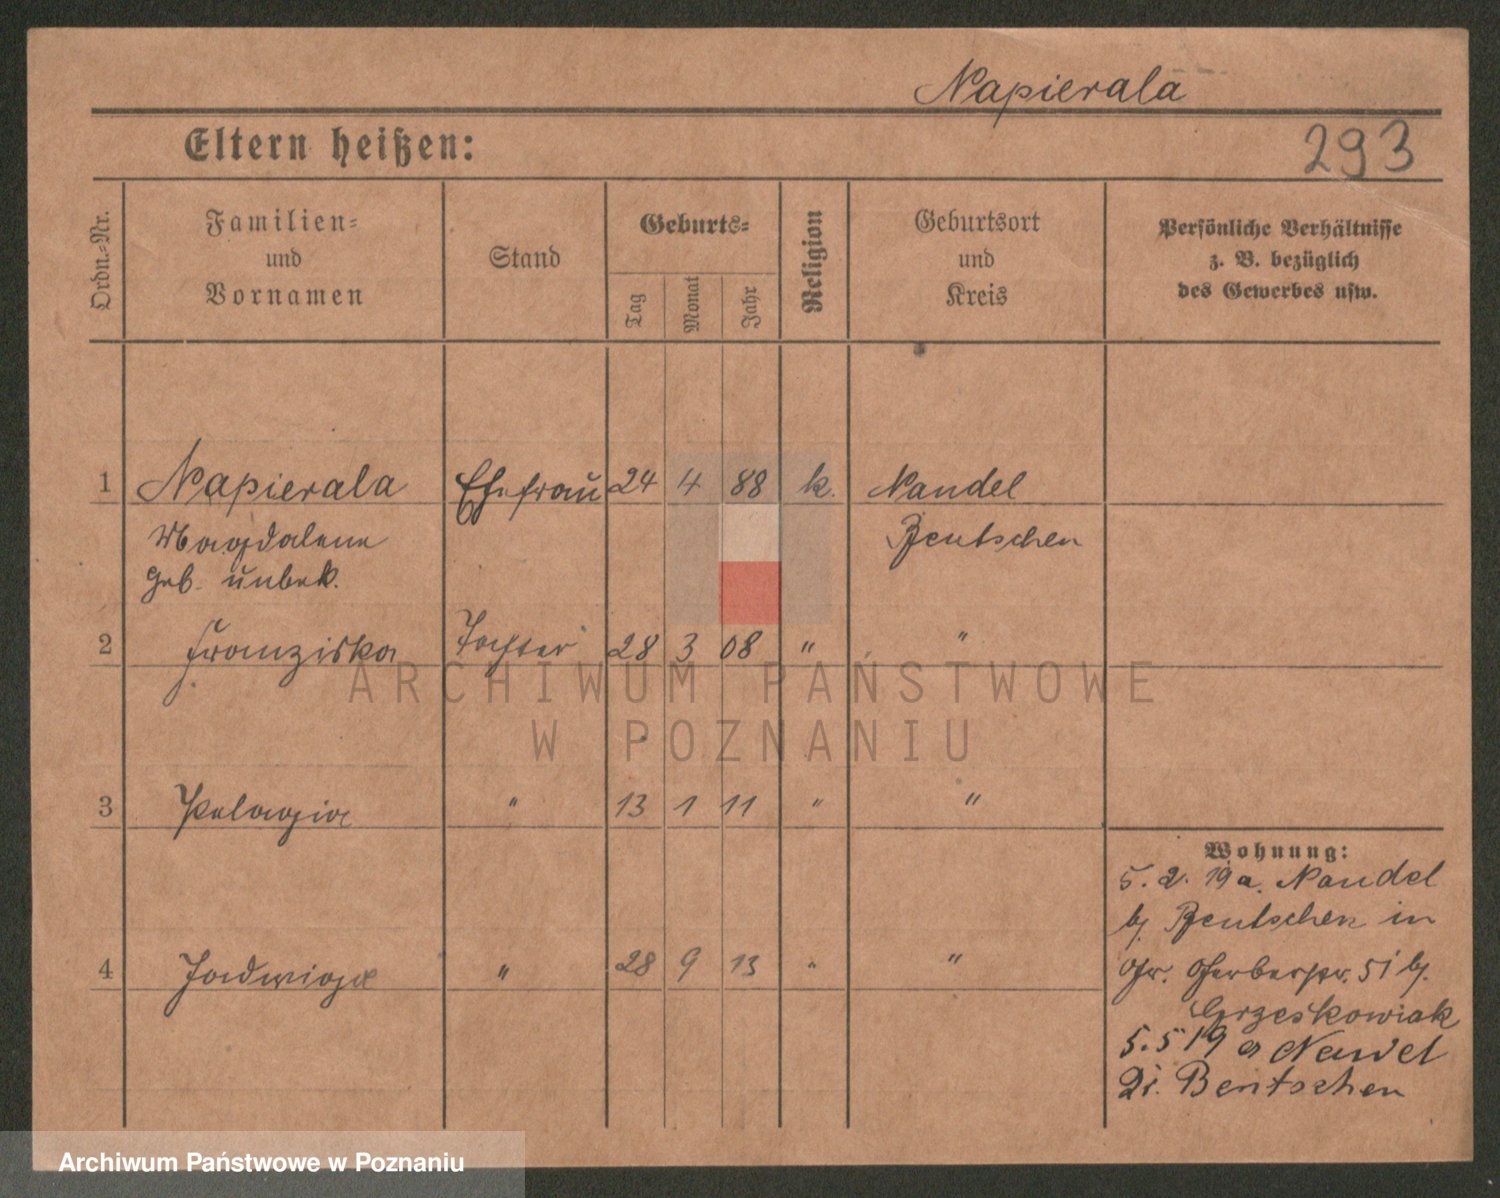 Napierala
Eltern heißen:
293
Ordn.-Nr.
Familien-
und
Vornamen
Stand
Geburts-
Tag
Monat
Jahr
Religion
Geburtsort
und
Kreis
Persönliche Verhältnisse
z. B. bezüglich
des Gewerbes usw.
1 Napierala Ehefrau 24 4 88 k. Nandel
Magdalene Bentschen
geb. unbek.
2 Franziska Tochter 28 3 08 " "
3 Pelagia " 13 1 11 " "
4 Jadwiga " 28 9 13 " "
Wohnung:
5. 2. 19 a. Nandel
b/ Bentschen in
Gr. Gerberstr. 51 b/.
Grzeskowiak
5. 5 19 a Nandel
Bentschen
ARCHIWUM PAŃSTWOWE
W POZNANIU
Archiwum Państwowe w Poznaniu